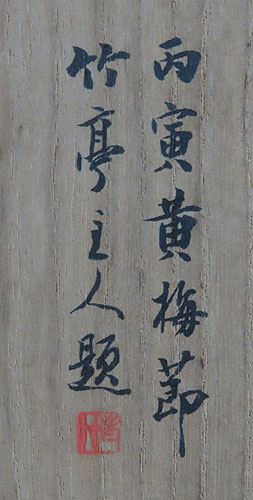 丙寅黄梅節
竹亭主人題